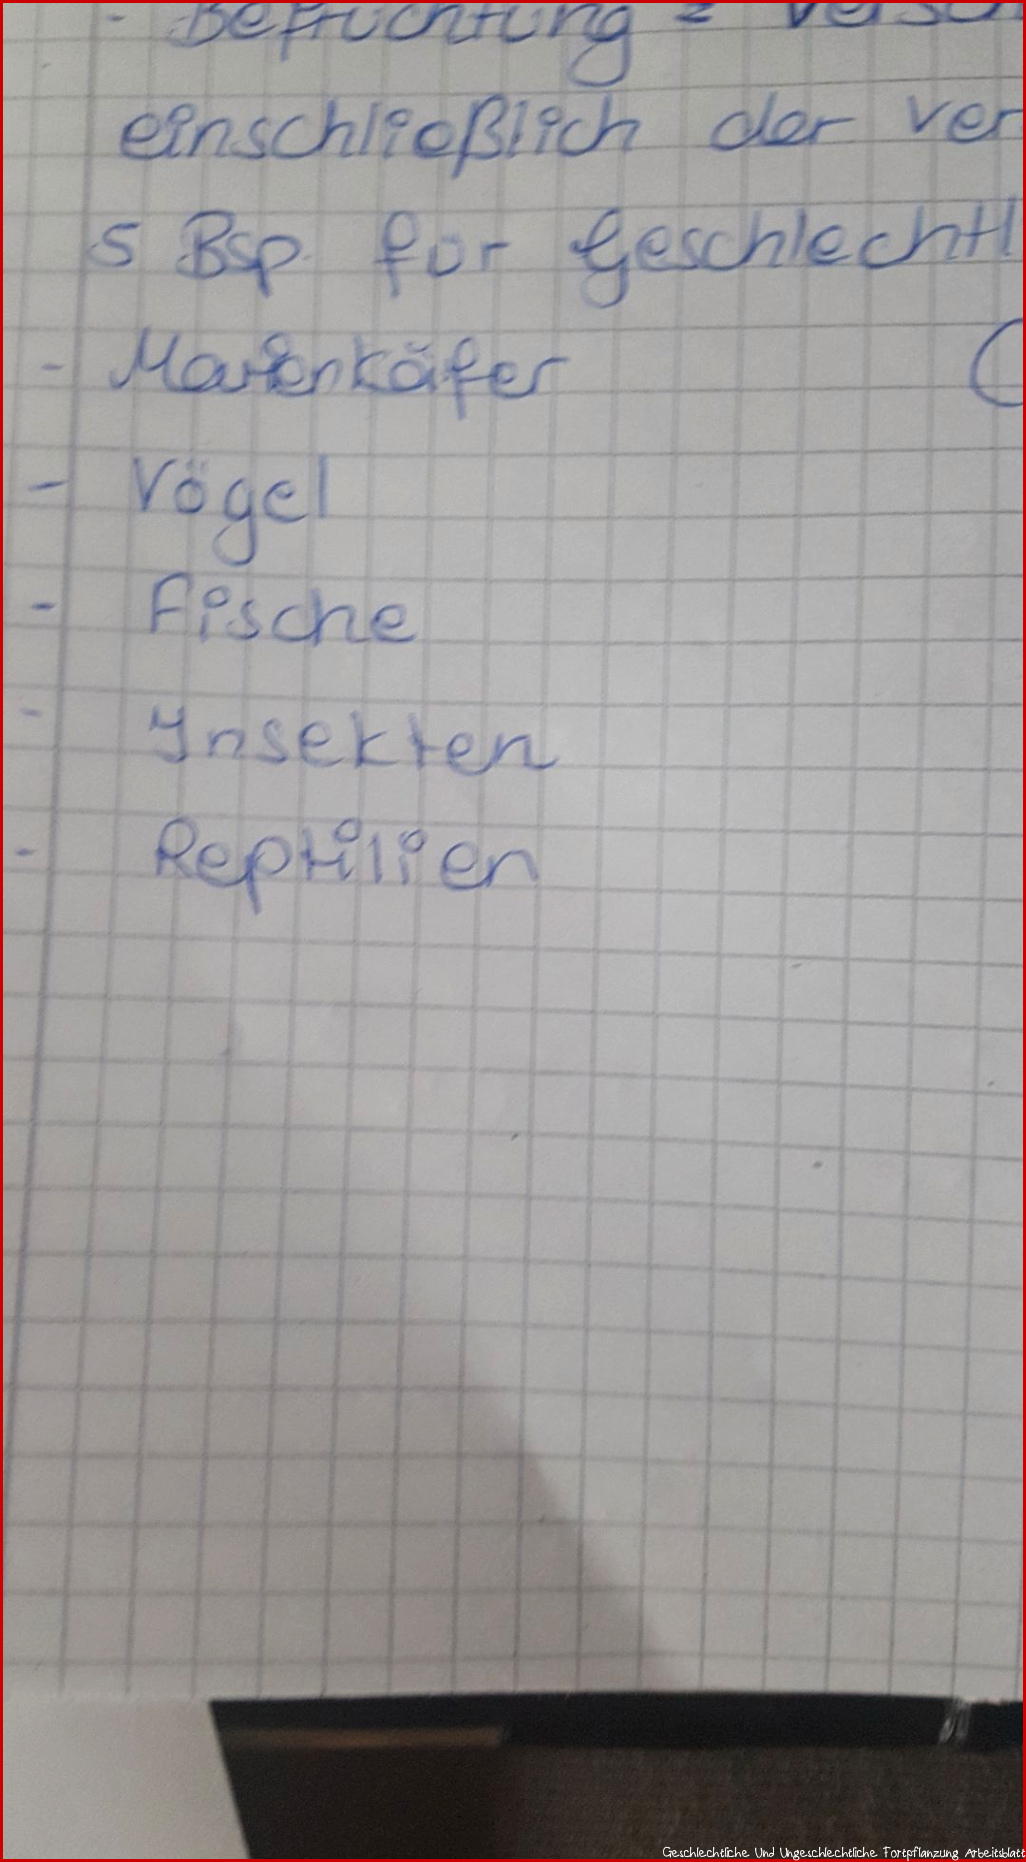 - Befruchtung =
einschließlich der Ver
5 Bsp. für Geschlechtl
- Marienkäfer (
- Vögel
- Fische
- Insekten
- Reptilien
Geschlechtliche Und Ungeschlechtliche Fortpflanzung Arbeitsblatt